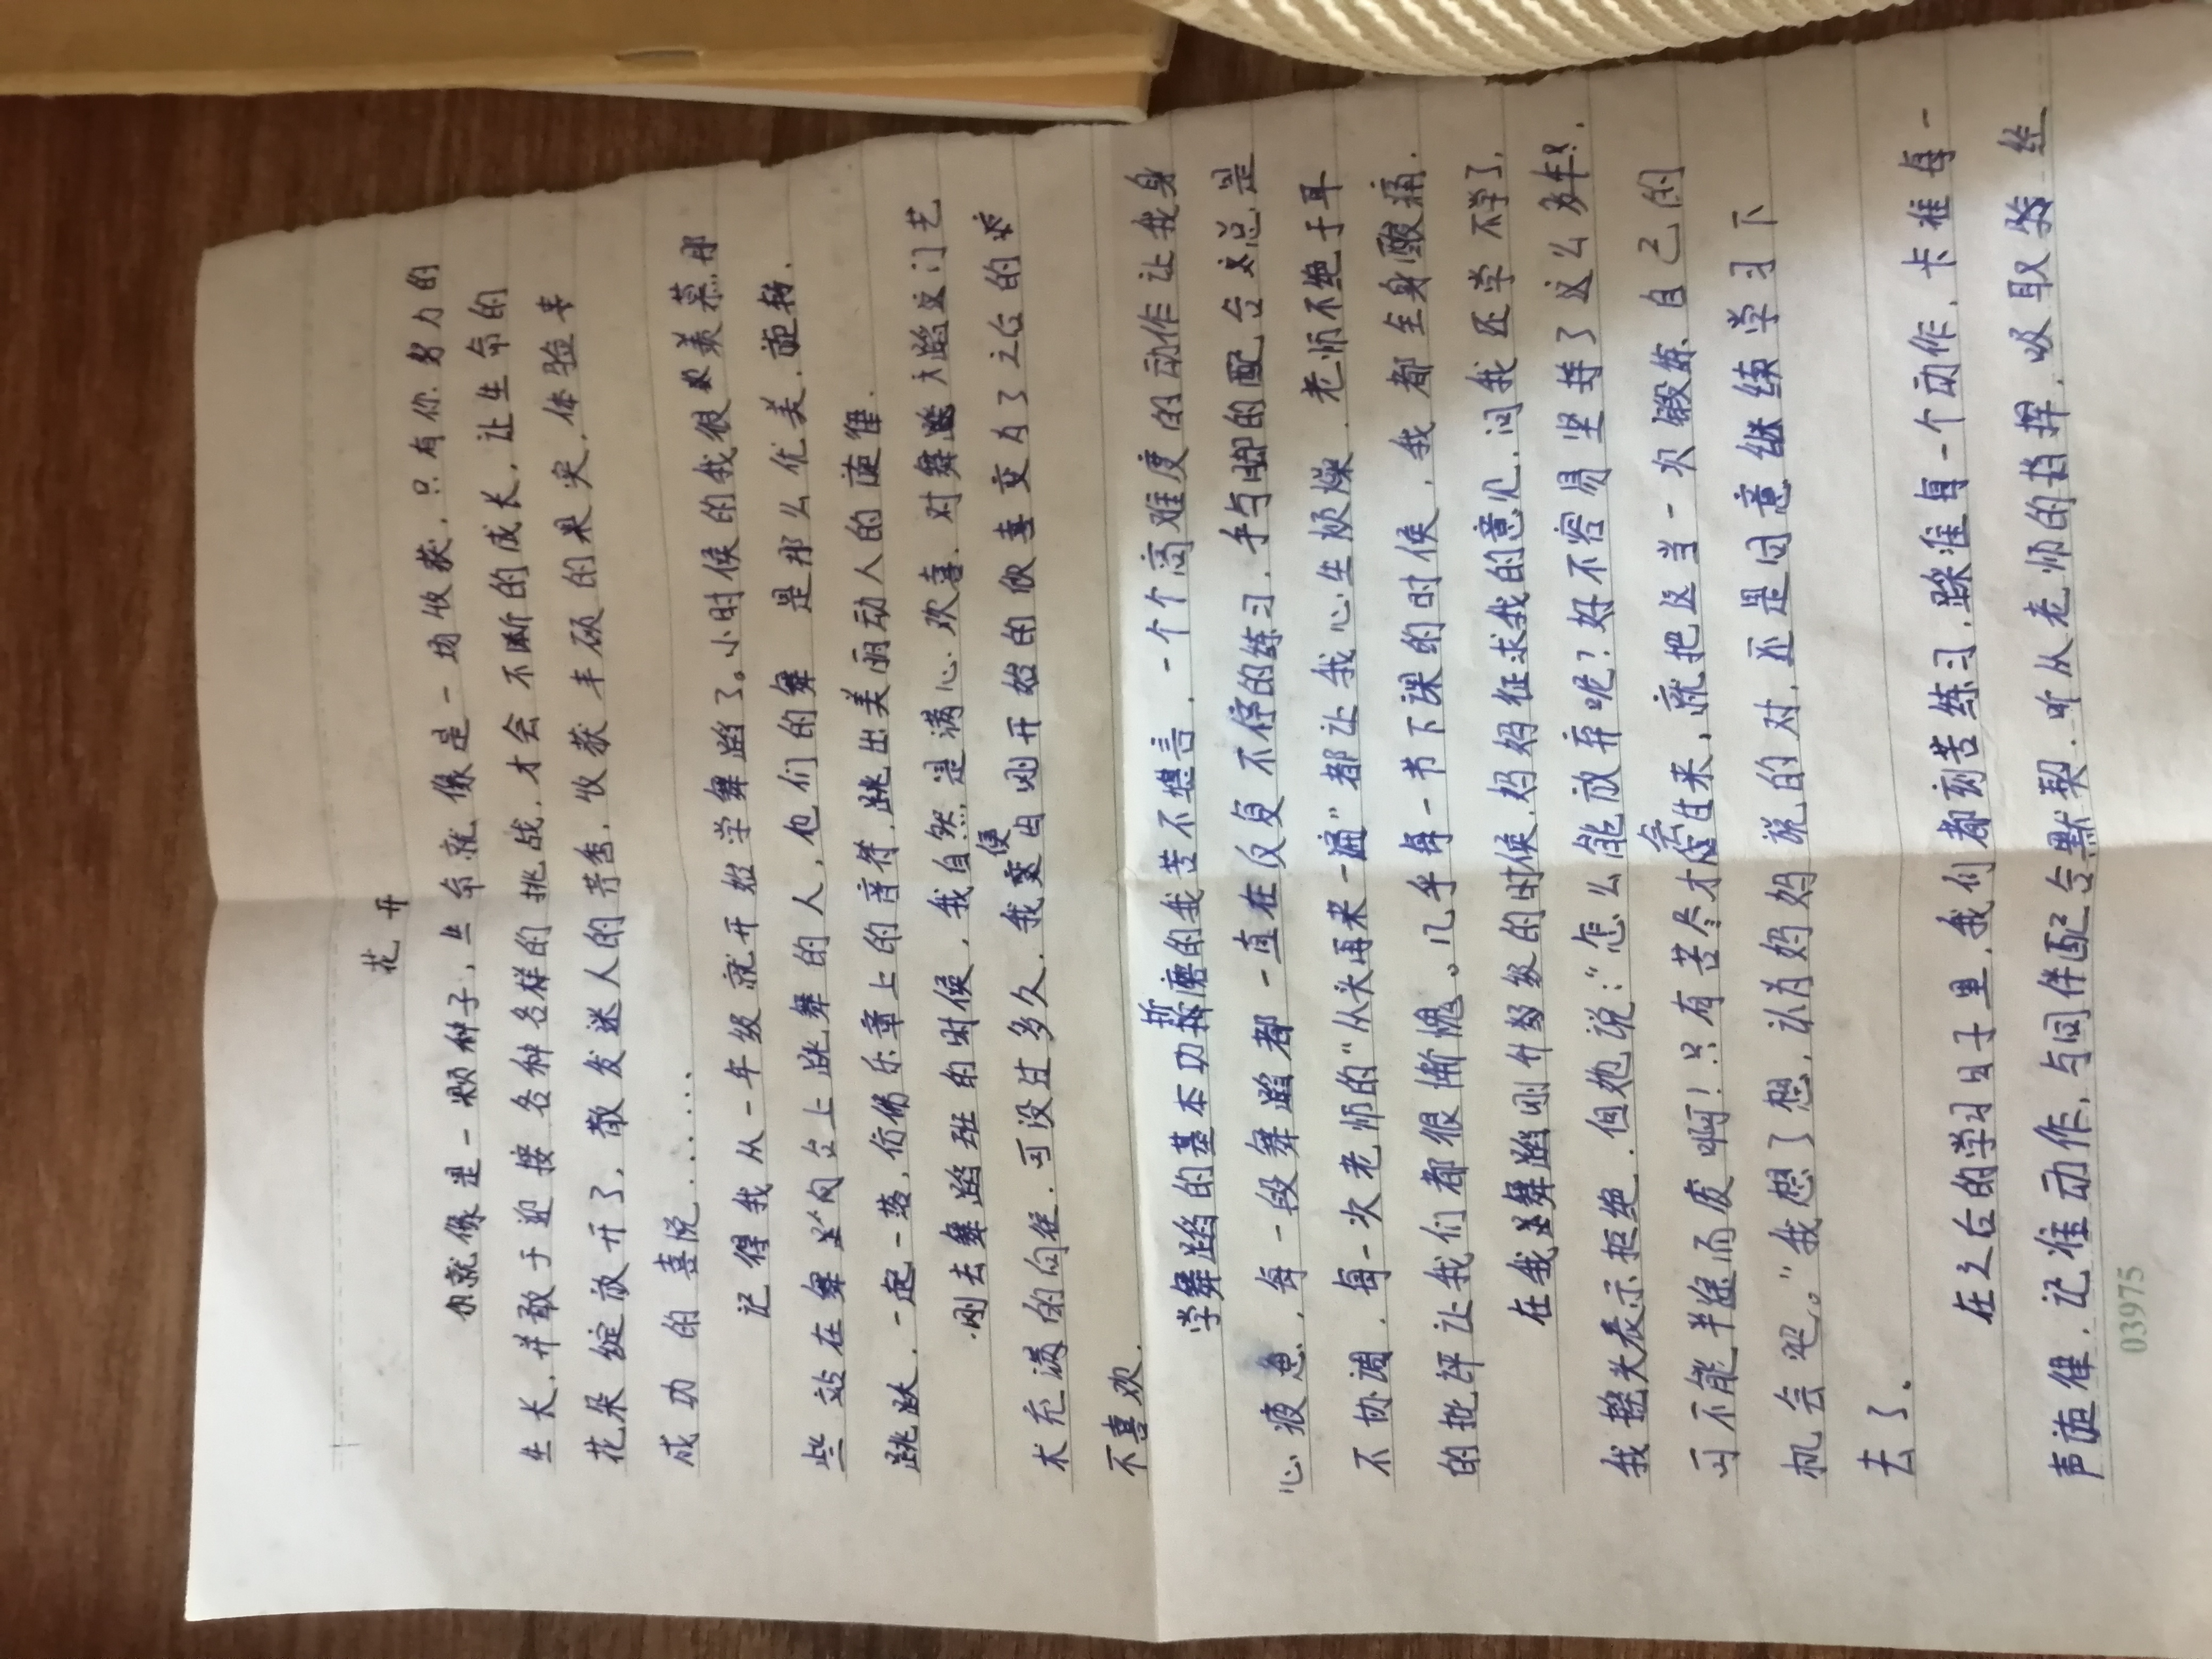 花开
你就像是一颗种子，生命就像是一场收获，只有你努力的
生长，并敢于迎接各种各样的挑战，才会不断的成长，让生命的
花朵绽放开了，散发迷人的芳香，收获丰硕的果实，体验丰
成功的喜悦......
记得我从一年级就开始学舞蹈了。小时候的我很羡慕那
些站在舞台上跳舞的人，他们的舞是那么优美，旋转，
跳跃，一起一落，仿佛乐章上的音符，跳出美丽动人的旋律．
刚去舞蹈班的时候，我自然是满心欢喜，对舞蹈这门艺
术充满的向往．可没过多久，我便由刚开始的欣喜变为了之后的
不喜欢．
学舞蹈的基本功折磨的我苦不堪言，一个个高难度的动作让我身
心疲惫，每一段舞蹈都一直在反复不停的练习，手与脚的配合总是
不协调，每一次老师的“从头再来一遍”都让我心生烦燥．老师不绝于耳
的批评让我们都很惭愧。几乎每一节下课的时候，我都全身酸痛．
在我舞蹈刚升级的时候，妈妈征求我的意见，问我还学不学了，
我摇头表示拒绝．但她说：“怎么能放弃呢？好不容易坚持了这么多年！
可不能半途而废啊！只有苦尽才会甘来，就把这当一次锻炼自己的
机会吧。”我想了想，认为妈妈说的对，还是同意继续学习下
去了。
在之后的学习日子里，我们都刻苦练习，踩准每一个动作，卡准每一
声旋律，记住动作，与同伴配合默契．听从老师的指挥，吸取经
039975